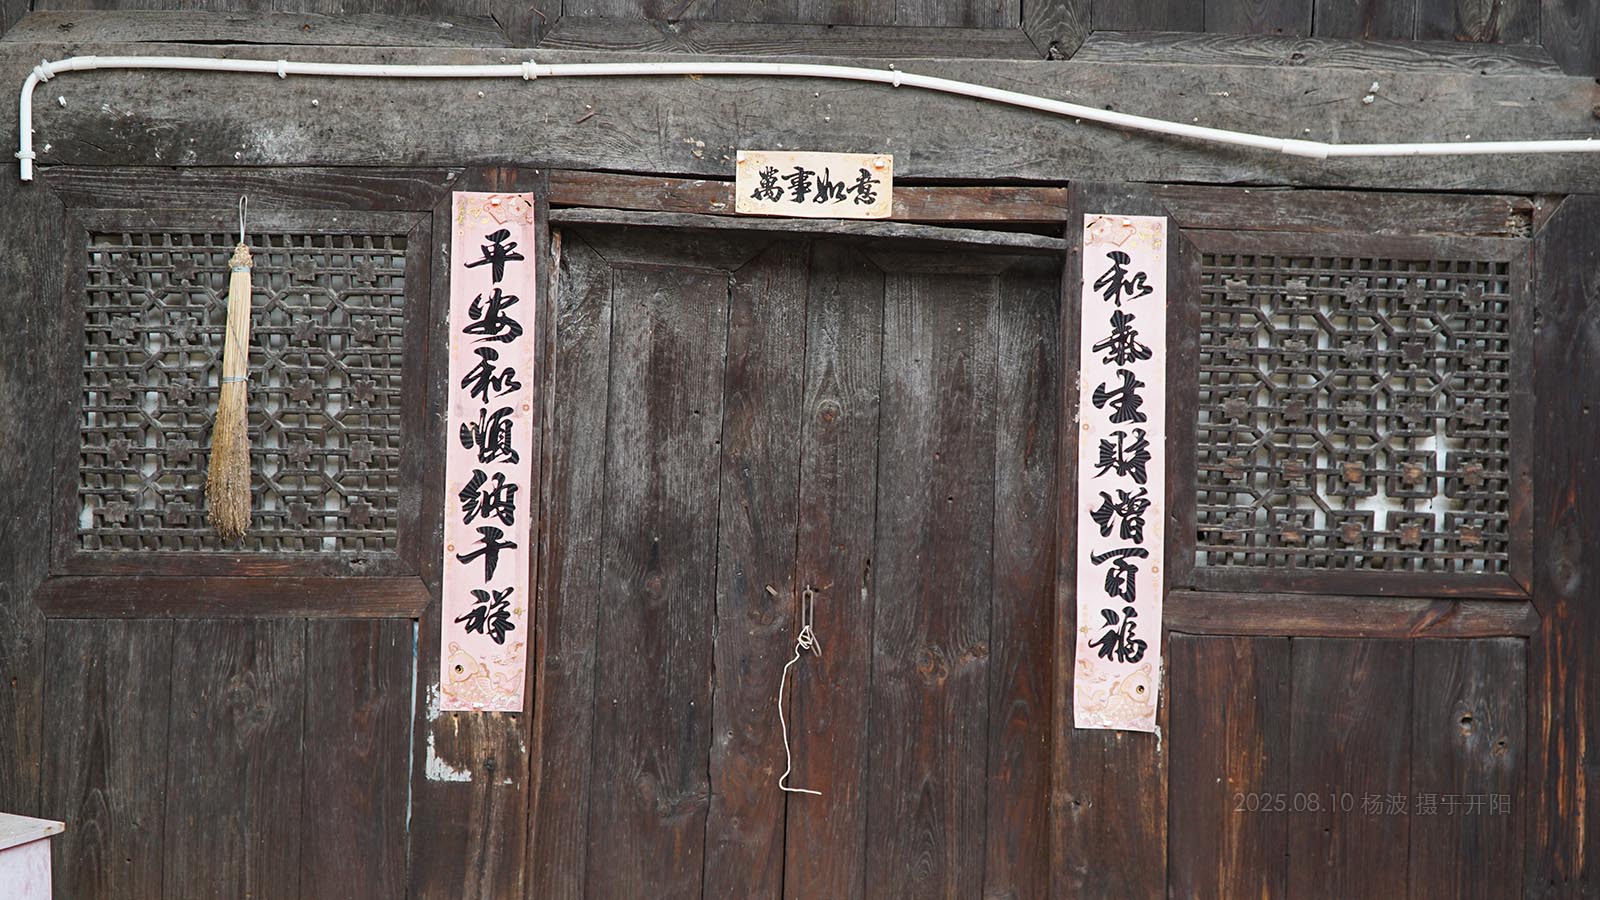 萬事如意
和氣生財增百福
平安和順納千祥
2025.08.10 杨波 摄于开阳